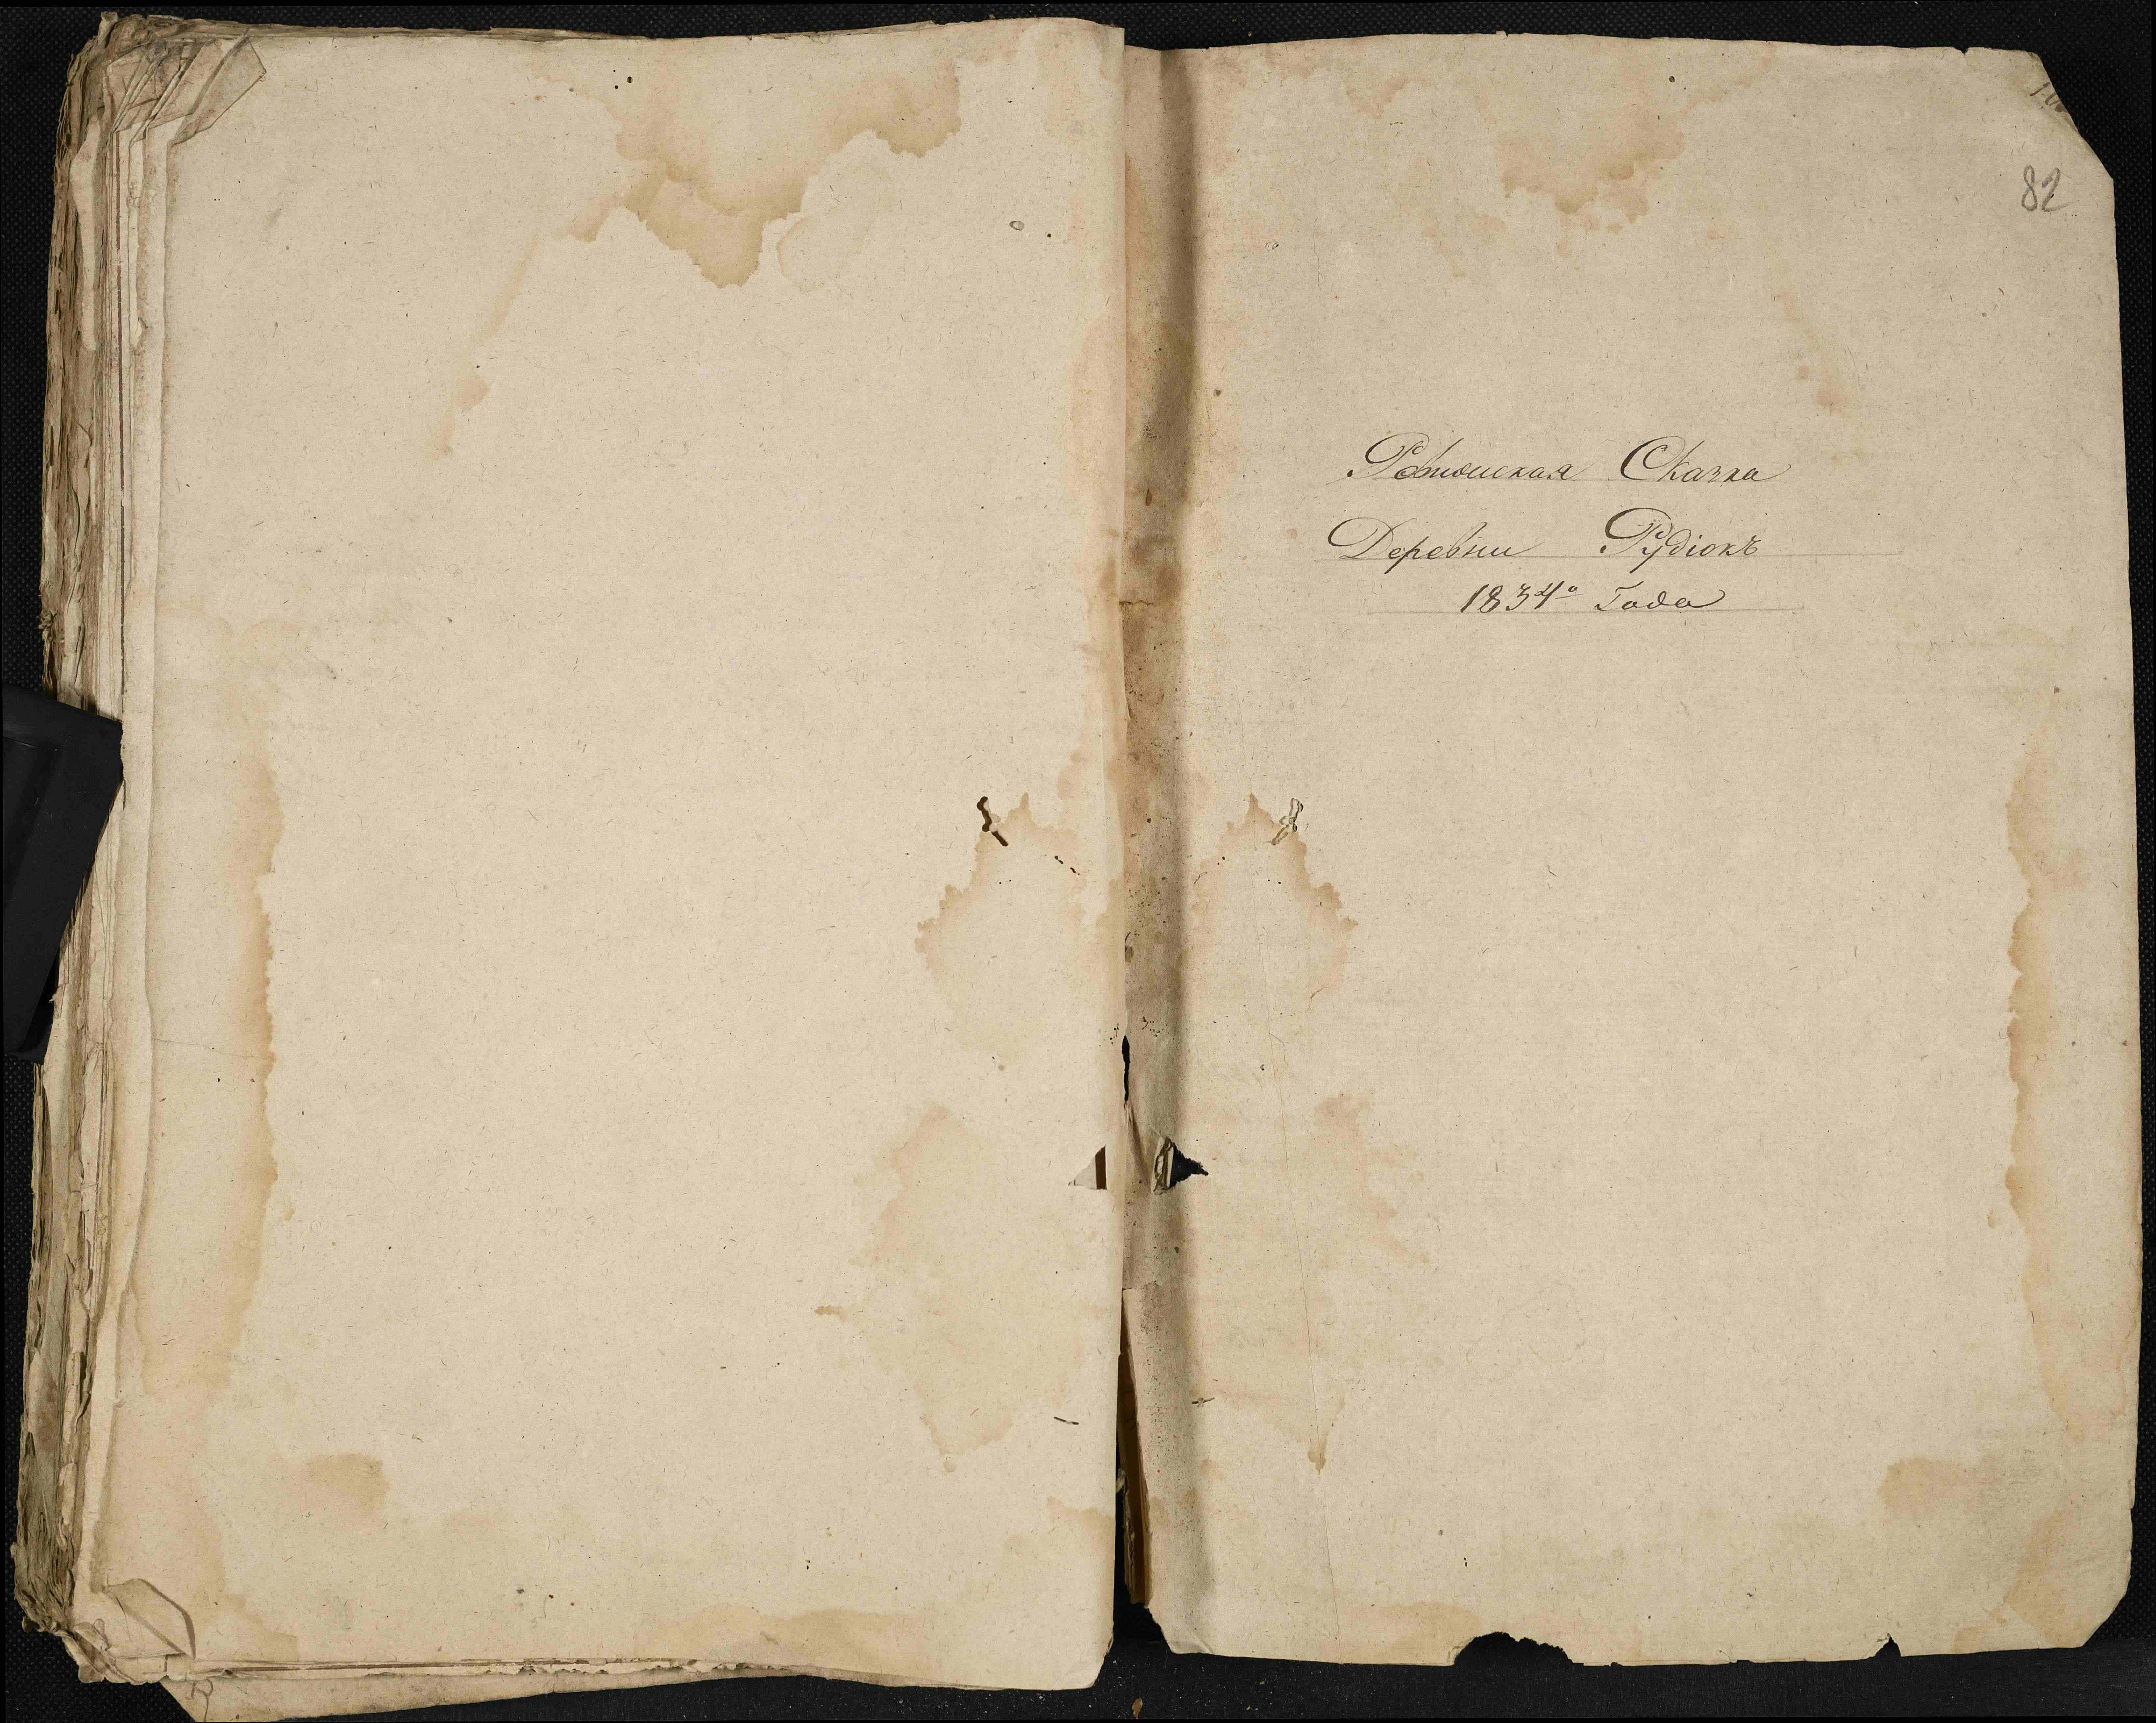 82
Ревизская Сказка
Деревни Рудіокъ
1834º Года